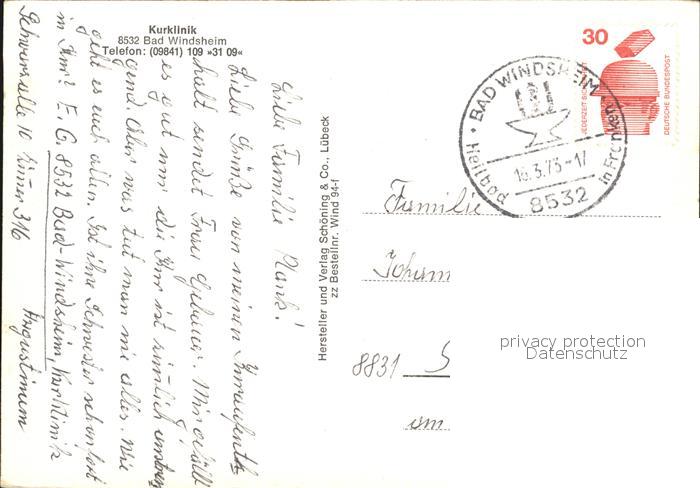 Kurklinik
8532 Bad Windsheim
Telefon: (09841) 109 »31 09«
Liebe Familie Plank!
Liebe Grüße von meinem Kuraufenth
halt sendet Frau Gebauer. Mir gefällt
es gut nur die Kur ist ziemlich anstren
gend Aber was tut man nie alles. Wie
geht es euch allen. Ist ihre Schwester schon fort
in Kur? E. G. 8532 Bad-Windsheim, Kurklinik
Schwarzallee 10 Zimmer 316 Augustinum
Hersteller und Verlag Schöning & Co., Lübeck
zz Bestellnr. Wind 94-f
30
JEDERZEIT SICHERHEIT
DEUTSCHE BUNDESPOST
BAD WINDSHEIM
Heilbad in Franken
16.3.73-17
8532
Familie
Johann
8831 S
am
privacy protection
Datenschutz